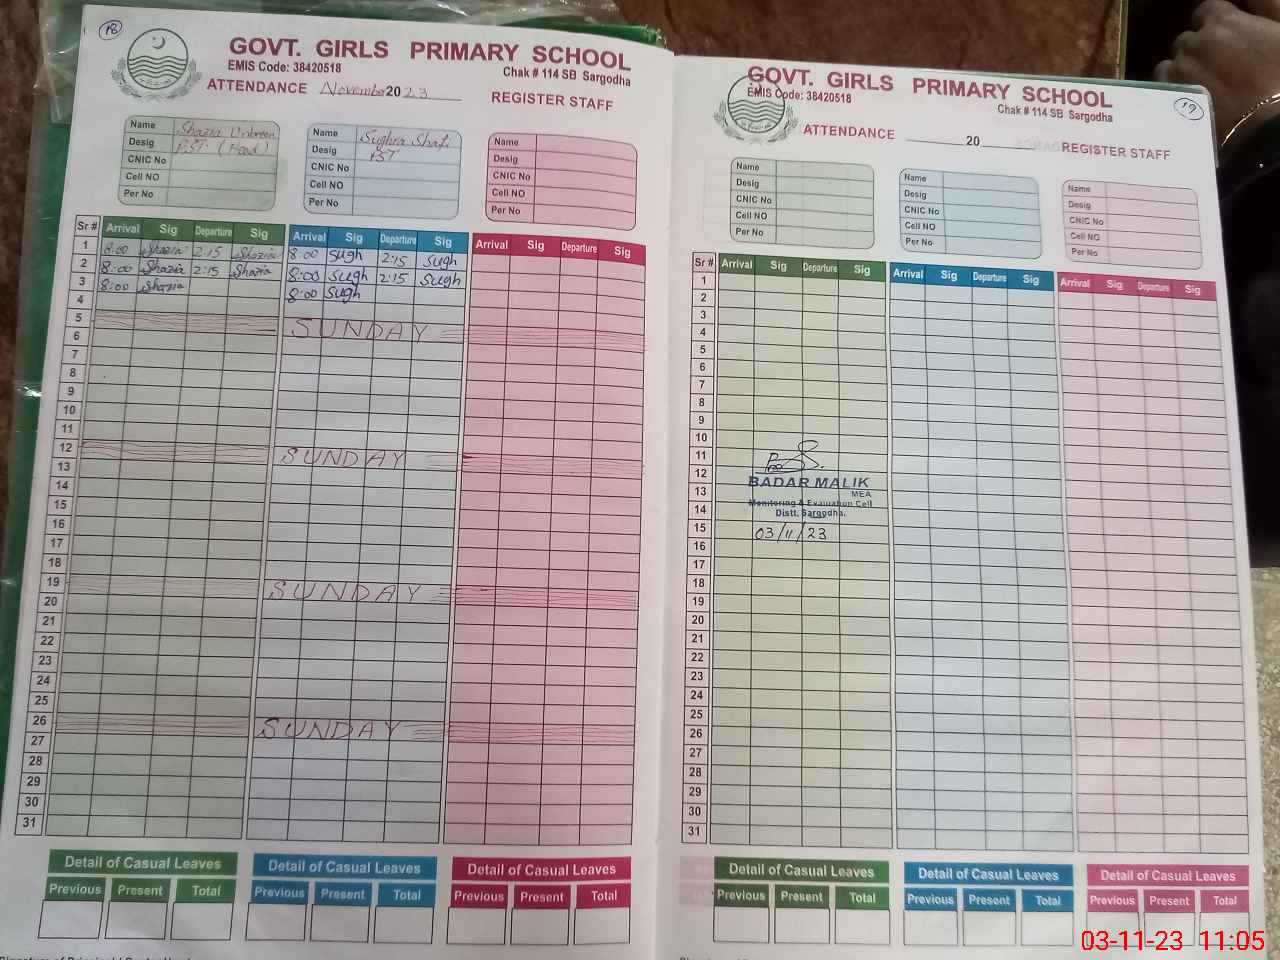 18
GOVT. GIRLS PRIMARY SCHOOL
EMIS Code: 38420518
Chak # 114 SB Sargodha
ATTENDANCE November 2023 REGISTER STAFF
Name Shazia Unbreen
Desig PST (Head)
CNIC No
Cell NO
Per No
Name Sughra Shafi
Desig PST
CNIC No
Cell NO
Per No
Name
Desig
CNIC No
Cell NO
Per No
Sr # Arrival Sig Departure Sig Arrival Sig Departure Sig Arrival Sig Departure Sig
1 8:00 Shazia 2:15 Shazia 8:00 Sugh 2:15 Sugh
2 8:00 Shazia 2:15 Shazia 8:00 Sugh 2:15 Sugh
3 8:00 Shazia 8:00 Sugh
4
5 SUNDAY
6
7
8
9
10
11
12 SUNDAY
13
14
15
16
17
18
19 SUNDAY
20
21
22
23
24
25
26 SUNDAY
27
28
29
30
31
Detail of Casual Leaves Detail of Casual Leaves Detail of Casual Leaves
Previous Present Total Previous Present Total Previous Present Total
19
GOVT. GIRLS PRIMARY SCHOOL
EMIS Code: 38420518
Chak # 114 SB Sargodha
ATTENDANCE ________20____ REGISTER STAFF
Name
Desig
CNIC No
Cell NO
Per No
Name
Desig
CNIC No
Cell NO
Per No
Name
Desig
CNIC No
Cell NO
Per No
Sr # Arrival Sig Departure Sig Arrival Sig Departure Sig Arrival Sig Departure Sig
1
2
3
4
5
6
7
8
9
10
11
12
13
14
15
16
17
18
19
20
21
22
23
24
25
26
27
28
29
30
31
BADAR MALIK
MEA
Monitoring & Evaluation Cell
Distt. Sargodha.
03/11/23
Detail of Casual Leaves Detail of Casual Leaves Detail of Casual Leaves
Previous Present Total Previous Present Total Previous Present Total
03-11-23 11:05